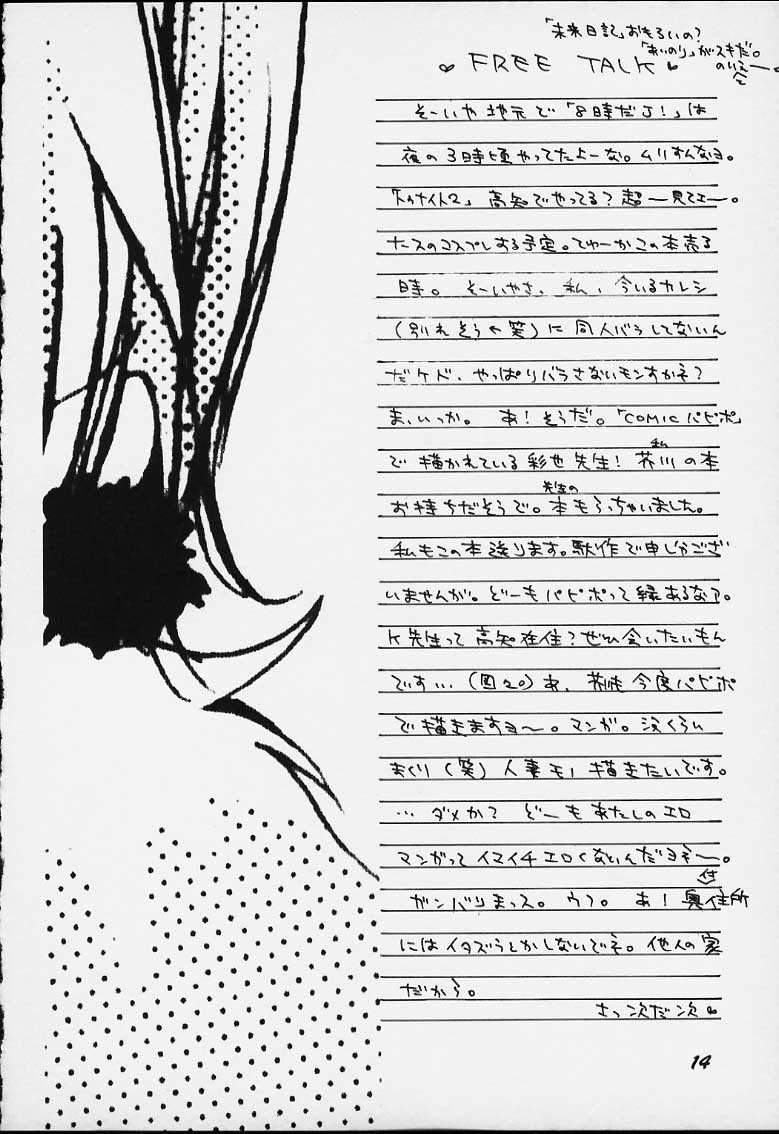 「未来日記」おもろいの?
「あいのり」がスキだ。
FREE TALK
そーいや地元で「8時だJ!」は
夜の3時頃やってたよーな。ムリすんなヨ。
「トゥナイト2」高知でやってる?超ー見てェー。
ナースのコスプレする予定。てゆーかこの本売る
時。そーいやさ、私、今いるカレシ
(別れそう←笑)に同人バラしてないん
だケド、やっぱりバラさないモンすかネ?
ま、いっか。あ!そうだ。「COMICパピポ」
で描かれている彩也先生!私芥川の本
お持ちだそうで。先生の本もらっちゃいました。
私もこの本送ります。駄作で申しわけござ
いませんが。どーもパピポって縁あるなァ。
K先生って高知在住?ぜひ会いたいもん
です…(図々)あ、芥川も今度パピポ
で描きますヨ〜。マンガ。
まくり(笑)人妻モノ描きたいです。
…ダメか?どーもあたしのエロ
マンガってイマイチエロくないんだヨネー。
ガンバリまっス。ウフ。あ!奥付住所
にはイタズラとかしないでネ。他人の家
だから。
さっ次だ次
14